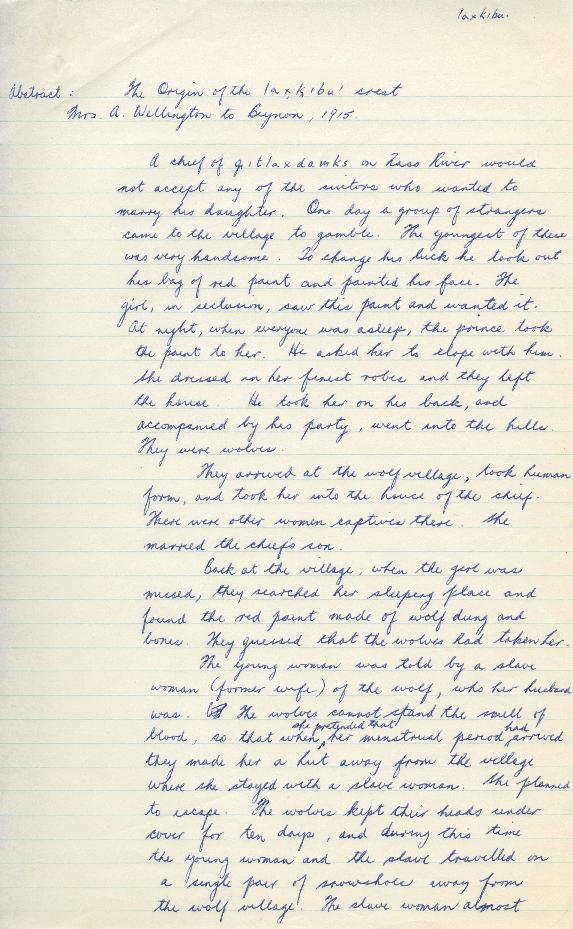 laxkibu.
Abstract: The Origin of the laxkibu' crest
Mrs. A. Wellington to Beynon, 1915.
A chief of gitlaxdamks on Nass River would
not accept any of the suitors who wanted to
marry his daughter. One day a group of strangers
came to the village to gamble. The youngest of these
was very handsome. To change his luck he took out
his bag of red paint and painted his face. The
girl, in seclusion, saw this paint and wanted it.
At night, when everyone was asleep, the prince took
the paint to her. He asked her to elope with him.
She dressed in her finest robes and they left
the house. He took her on his back, and
accompanied by his party, went into the hills.
They were wolves.
They arrived at the wolf village, took human
form, and took her into the house of the chief.
There were other women captives there. She
married the chief's son.
Back at the village, when the girl was
missed, they searched her sleeping place and
found the red paint made of wolf dung and
bones. They guessed that the wolves had taken her.
The young woman was told by a slave
woman (former wife) of the wolf, who her husband
was. The wolves cannot stand the smell of
blood, so that when she pretended that her menstrual period had arrived
they made her a hut away from the village
where she stayed with a slave woman. She planned
to escape. The wolves kept their heads under
cover for ten days, and during this time
the young woman and the slave travelled on
a single pair of snowshoes away from
the wolf village. The slave woman almost